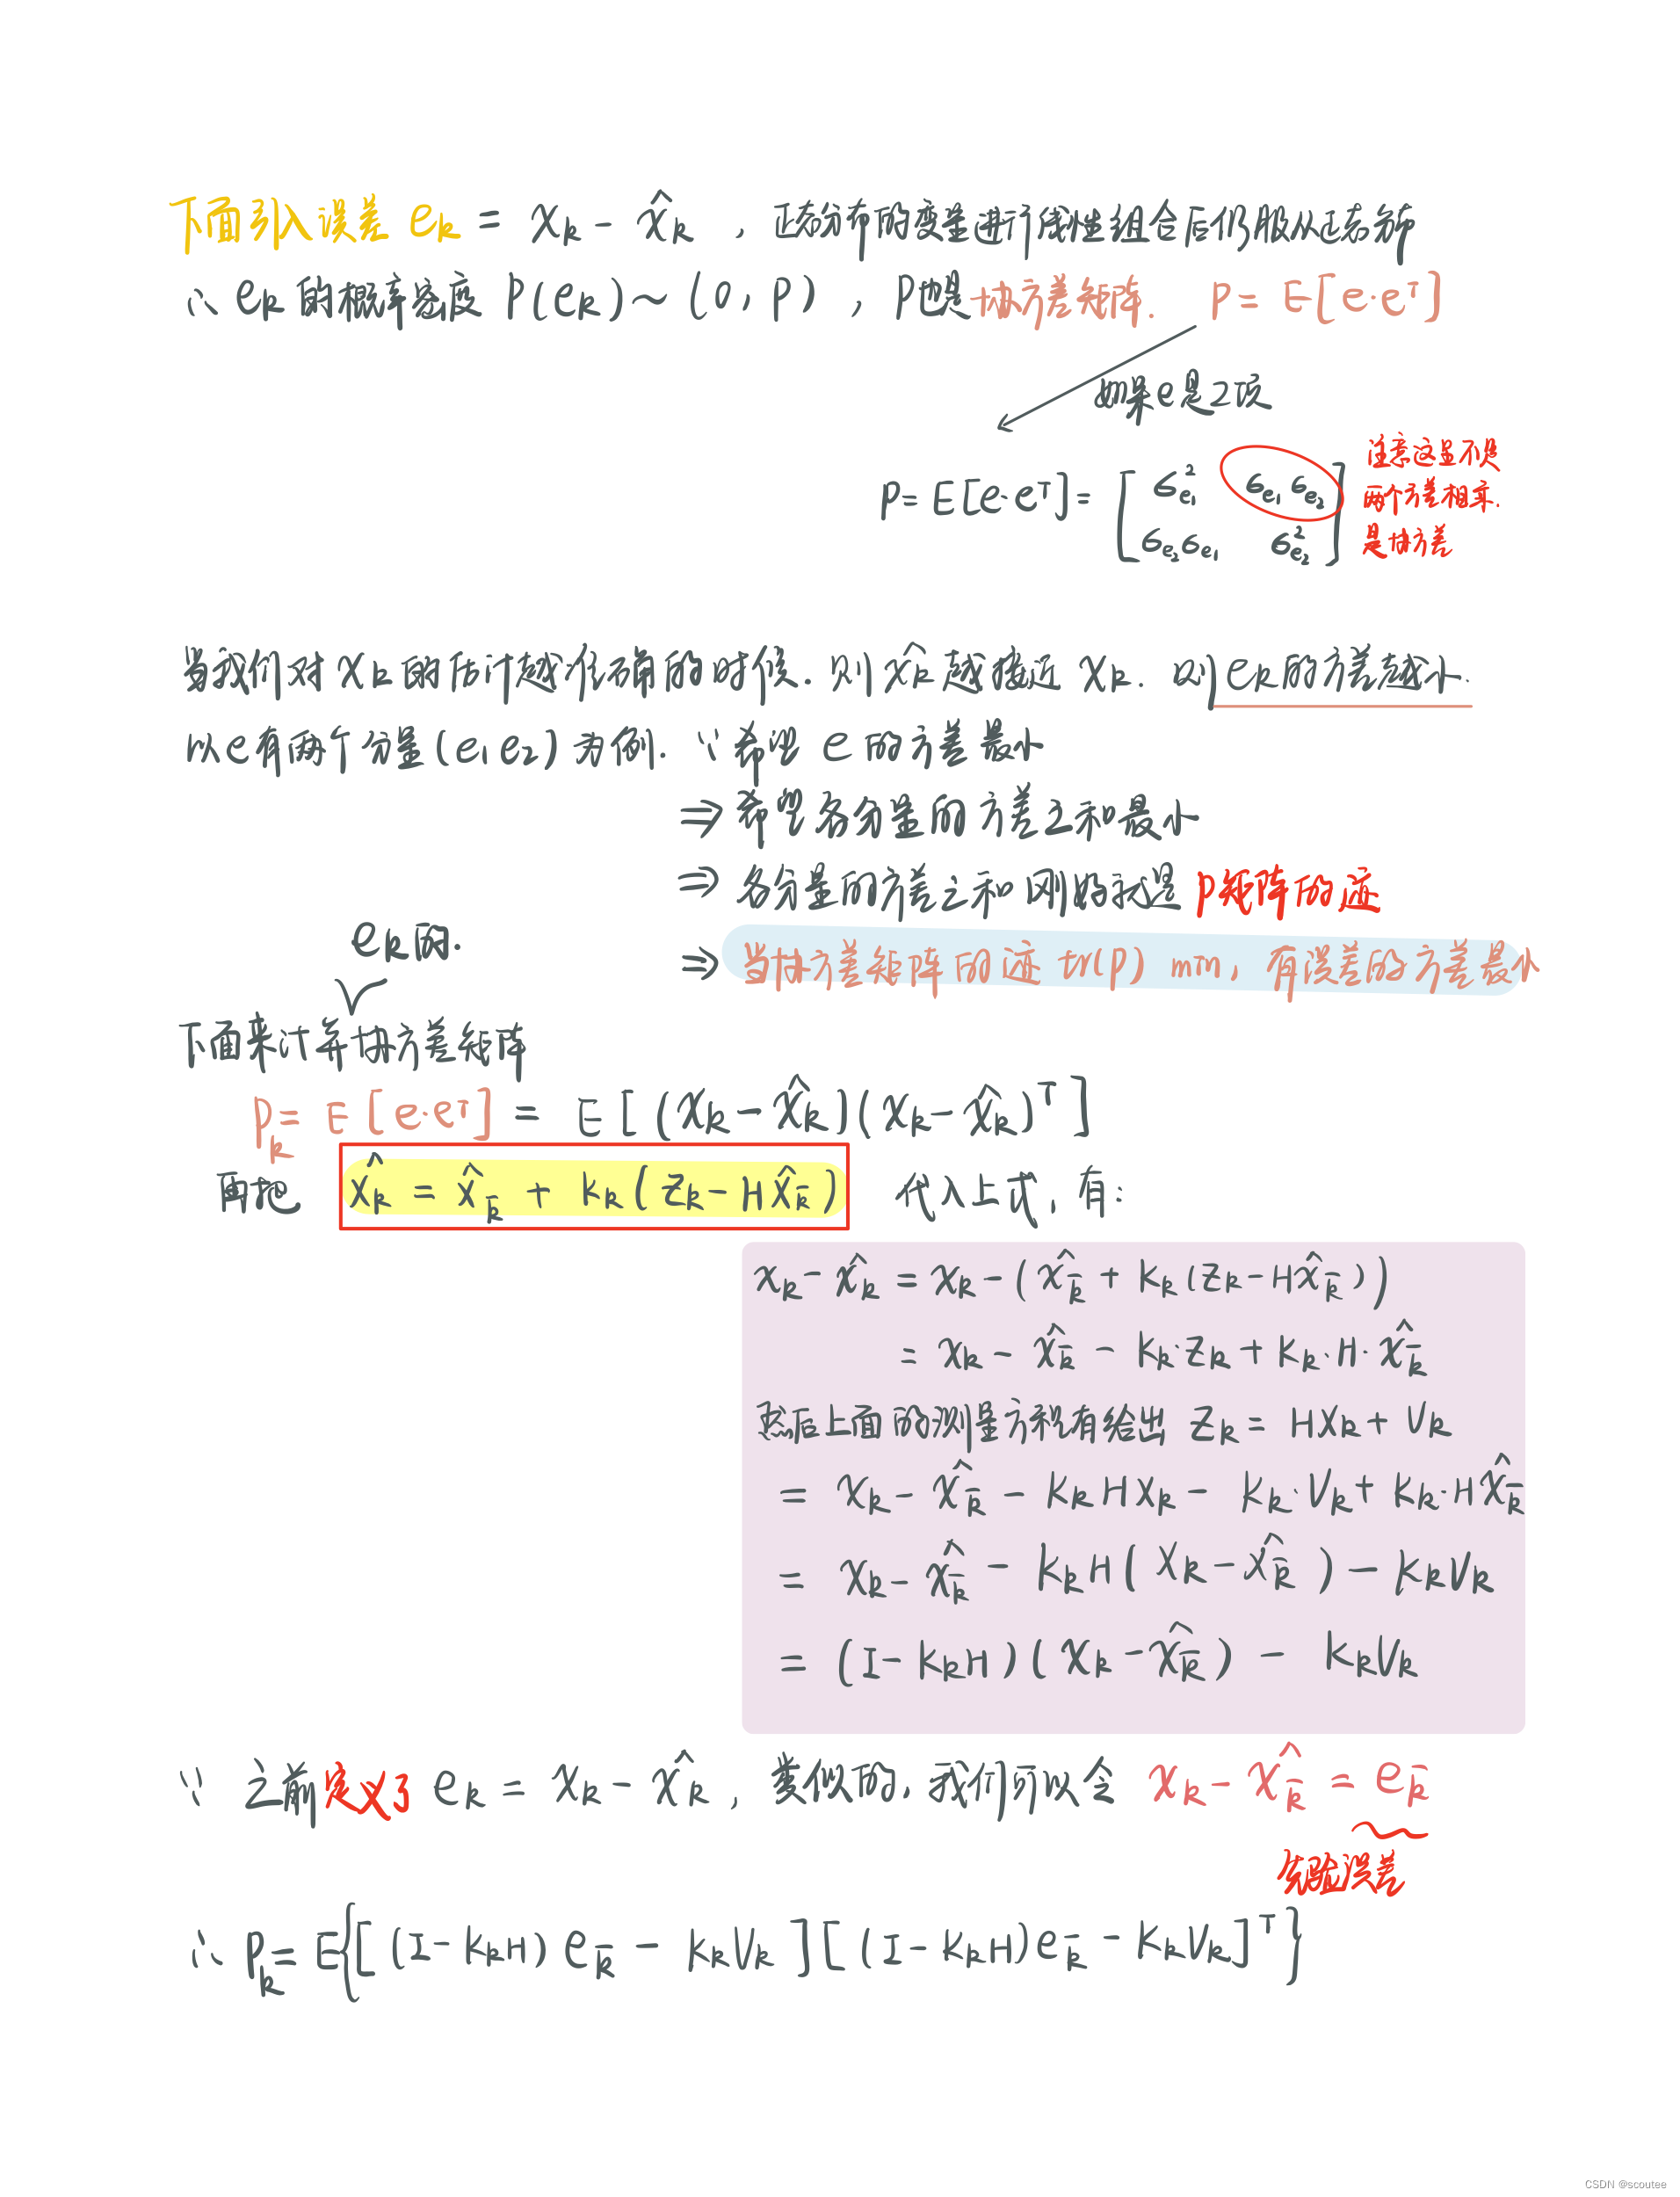 下面引入误差 eₖ = xₖ - x̂ₖ ，正态分布的变量进行线性组合后仍服从正态分布
∴ eₖ 的概率密度 P(eₖ) ~ (0, P) ，P也是协方差矩阵. P = E[e·eᵀ]
如果e是2项
P = E[e·eᵀ] = [ σ²e₁ σe₁σe₂
σe₂σe₁ σ²e₂ ]
注意这里不是
两个方差相乘.
是协方差
当我们对 xₖ 的估计越准确的时候. 则 x̂ₖ 越接近 xₖ. 则 eₖ的方差越小.
以e有两个分量(e₁ e₂) 为例. ∵ 希望 e 的方差最小
⇒ 希望各分量的方差之和最小
⇒ 各分量的方差之和刚好就是 P矩阵的迹
⇒ 当协方差矩阵的迹 tr(P) min, 有误差的方差最小
eₖ的.
下面来计算协方差矩阵
Pₖ = E[e·eᵀ] = E[(xₖ - x̂ₖ)(xₖ - x̂ₖ)ᵀ]
再把 x̂ₖ = x̂ₖ̄ + Kₖ(zₖ - Hx̂ₖ̄) 代入上式, 有:
xₖ - x̂ₖ = xₖ - (x̂ₖ̄ + Kₖ(zₖ - Hx̂ₖ̄))
= xₖ - x̂ₖ̄ - Kₖ·zₖ + Kₖ·H·x̂ₖ̄
然后上面的测量方程有给出 zₖ = Hxₖ + Vₖ
= xₖ - x̂ₖ̄ - KₖHxₖ - Kₖ·Vₖ + Kₖ·Hx̂ₖ̄
= xₖ - x̂ₖ̄ - KₖH(xₖ - x̂ₖ̄) - KₖVₖ
= (I - KₖH)(xₖ - x̂ₖ̄) - KₖVₖ
∵ 之前定义了 eₖ = xₖ - x̂ₖ, 类似的, 我们可以令 xₖ - x̂ₖ̄ = eₖ̄
先验误差
∴ Pₖ = E{[(I - KₖH)eₖ̄ - KₖVₖ][(I - KₖH)eₖ̄ - KₖVₖ]ᵀ}
CSDN @scoutee